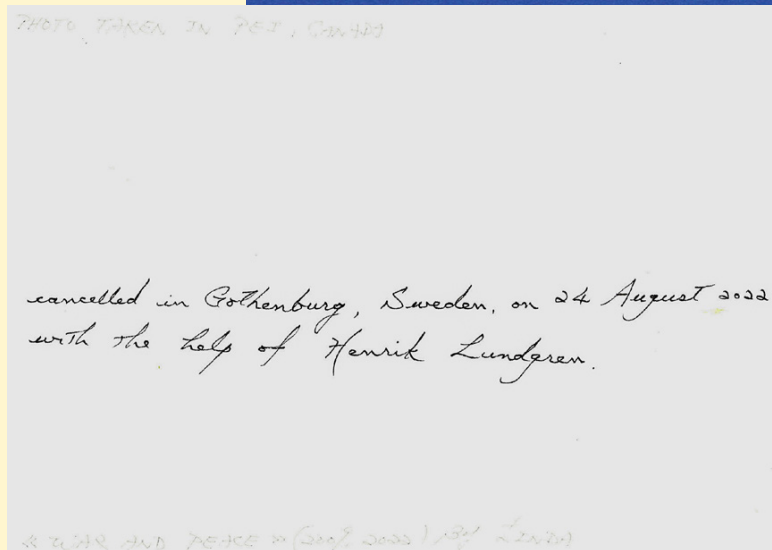 PHOTO TAKEN IN PEI, CANADA
cancelled in Gothenburg, Sweden, on 24 August 2022
with the help of Henrik Lundgren.
« WAR AND PEACE » (2009, 2022) BY LINDA